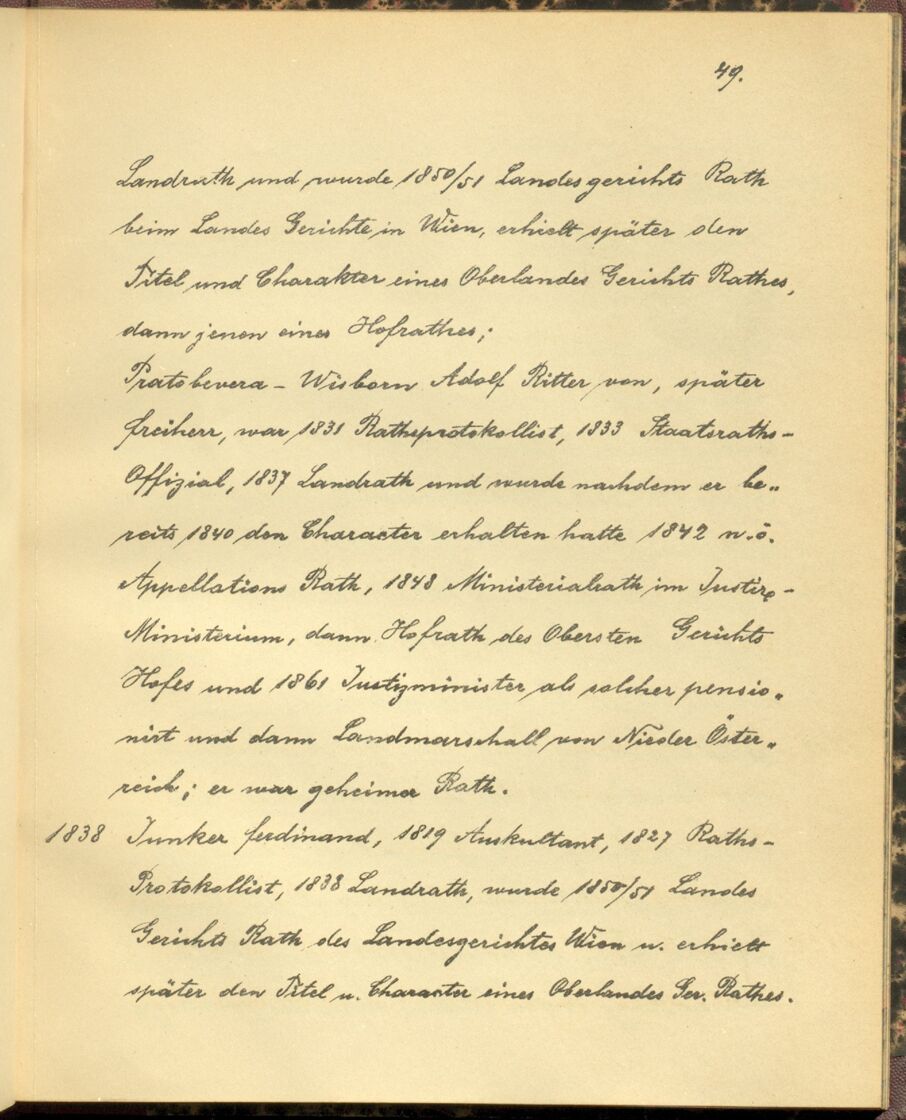 49.
Landrath und wurde 1850/51 Landesgerichts Rath
beim Landes Gerichte in Wien, erhielt später den
Titel und Charakter eines Oberlandes Gerichts Rathes,
dann jenen eines Hofrathes;
Pratobevera - Wisborn Adolf Ritter von, später
freiherr, war 1831 Rathsprotokollist, 1833 Staatsraths-
Offizial, 1837 Landrath und wurde nachdem er be„
reits 1840 den Character erhalten hatte 1842 n.ö.
Appellations Rath, 1848 Ministerialrath im Justiz-
Ministerium, dann Hofrath des Obersten Gerichts
Hofes und 1861 Justizminister als solcher pensio„
nirt und dann Landmarschall von Nieder Öster„
reich; er war geheimer Rath.
1838 Junker ferdinand, 1819 Auskultant, 1827 Raths-
Protokollist, 1838 Landrath, wurde 1850/51 Landes
Gerichts Rath des Landesgerichtes Wien u. erhielt
später den Titel u. Character eines Oberlandes Ger. Rathes.